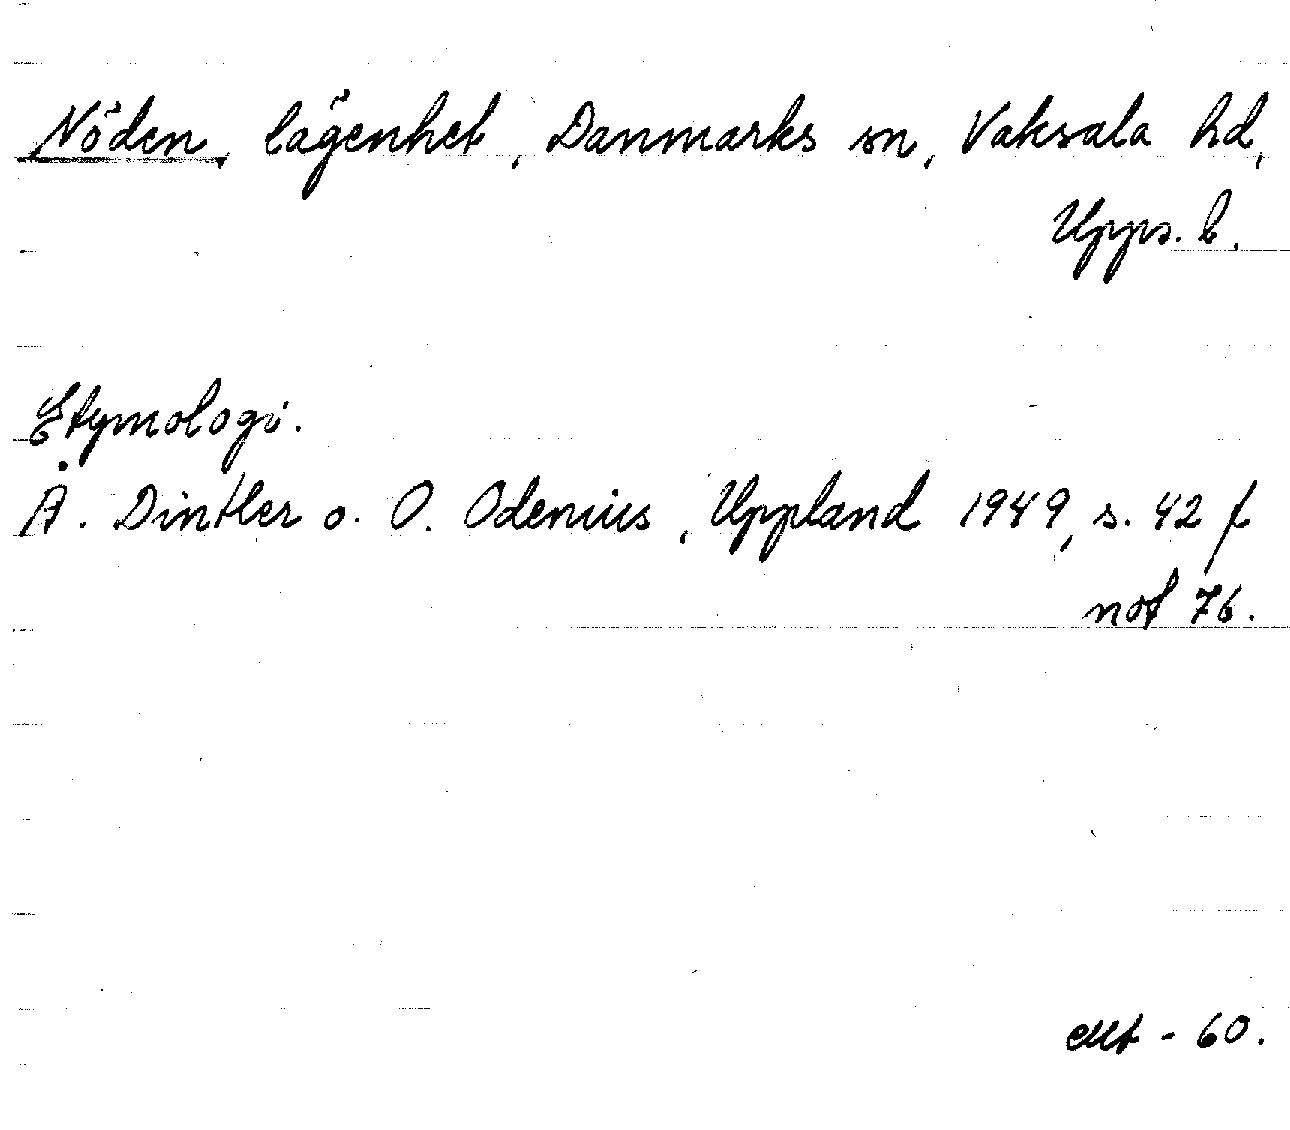 Nöden, lägenhet, Danmarks sn, Vaksala hd,
Upps. l.
Etymologi.
Å. Dintler o. O. Odenius, Uppland 1949, s. 42 f
not 76.
- 60.